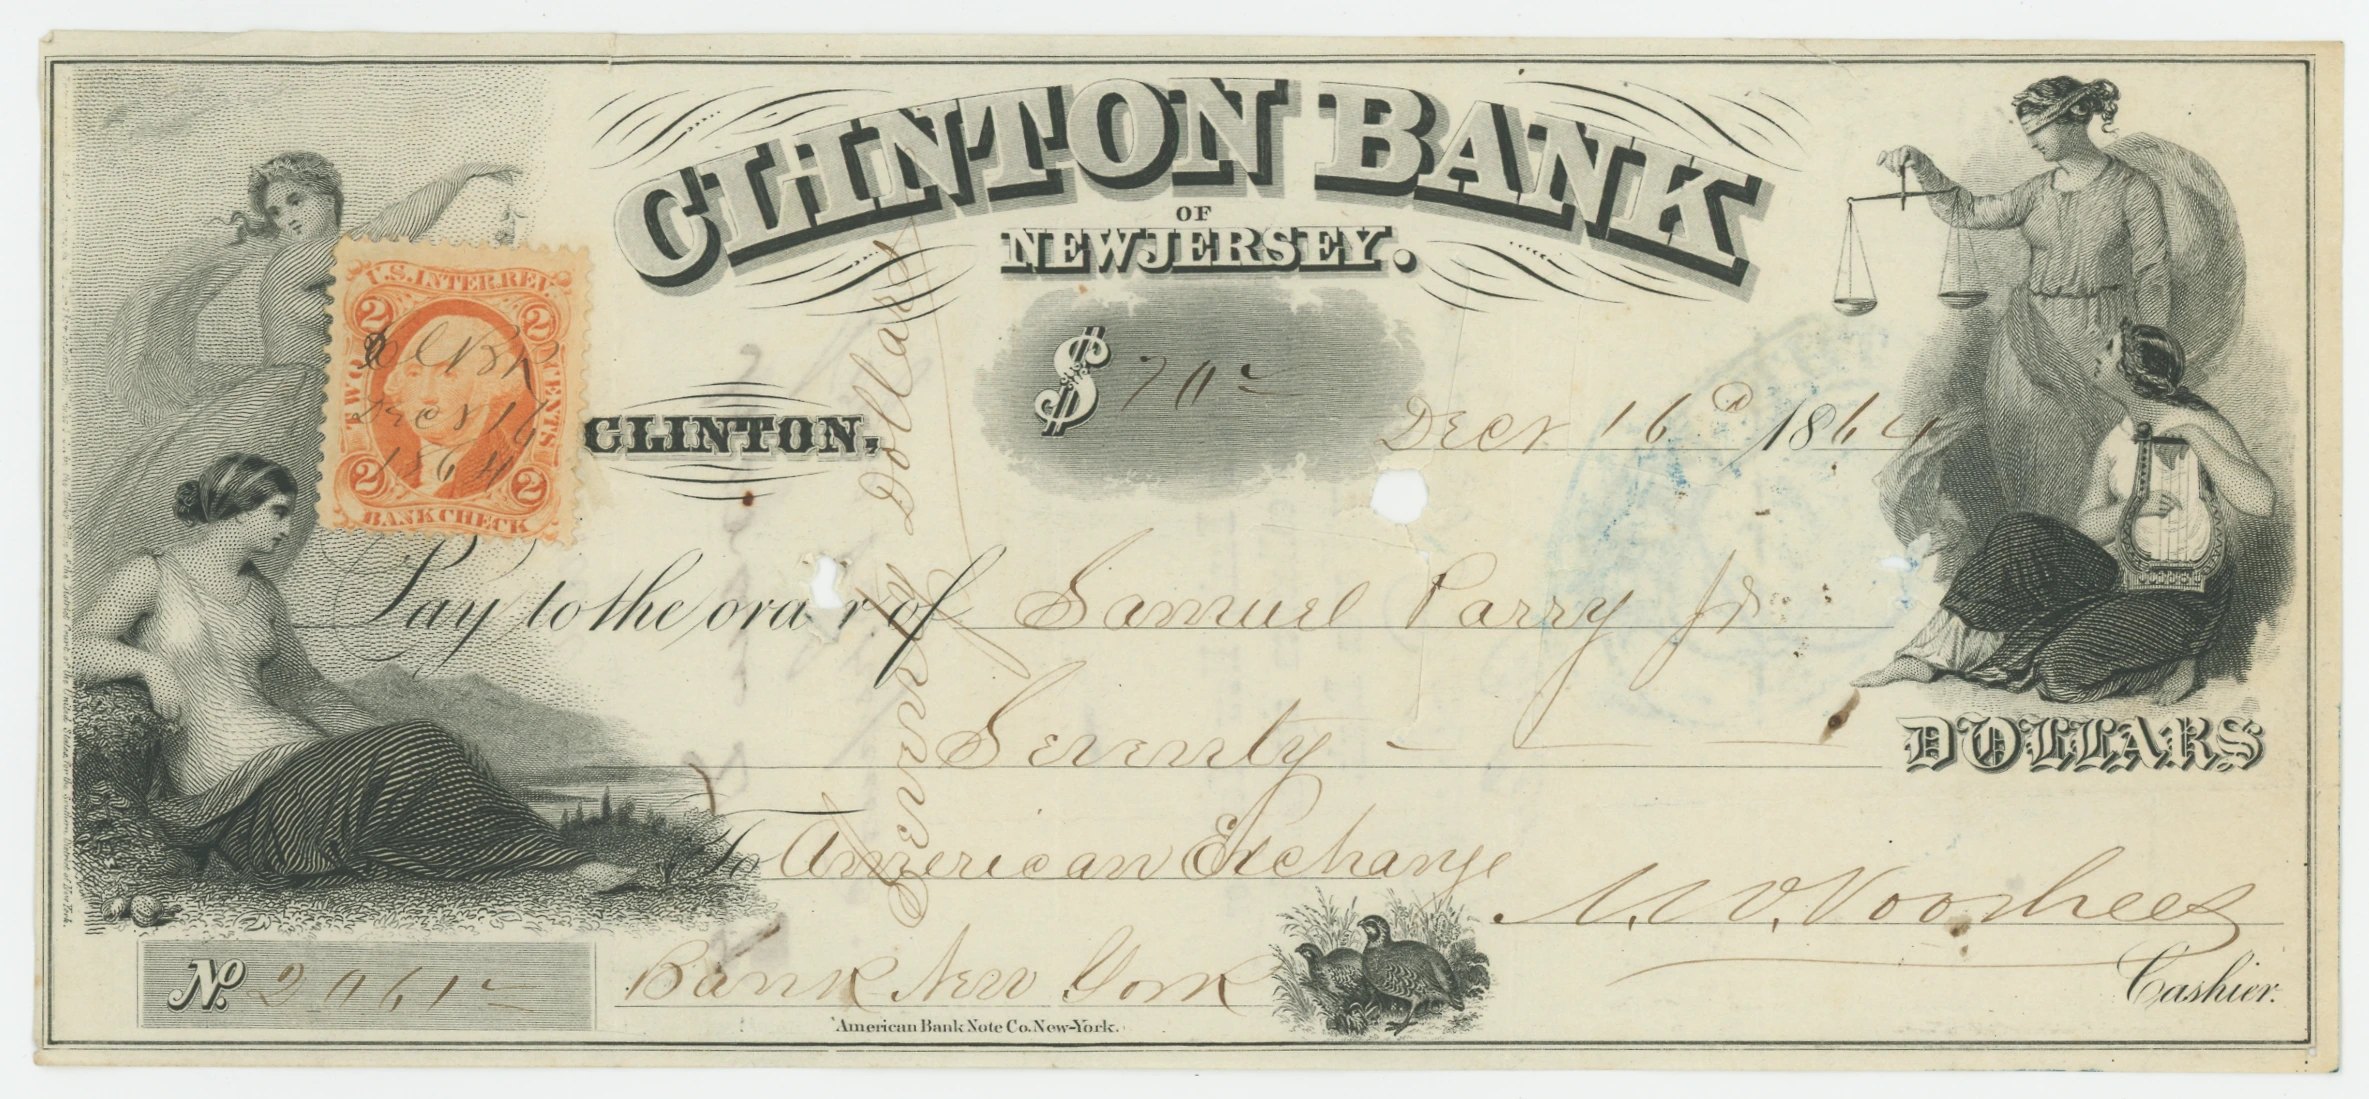 CLINTON BANK
OF
NEW JERSEY.
U.S. INTER. REV.
2 2
TWO CENTS
Clinton Bk
Dec 17
1864
2 2
BANK CHECK
CLINTON,
$ 70
Decr 16d 1864
Pay to the order of Samuel Parry Jr
Seventy DOLLARS
Seventy Dollars
To American Exchange
Bank New York
Voorhees
Cashier.
No. 2061
American Bank Note Co. New-York.